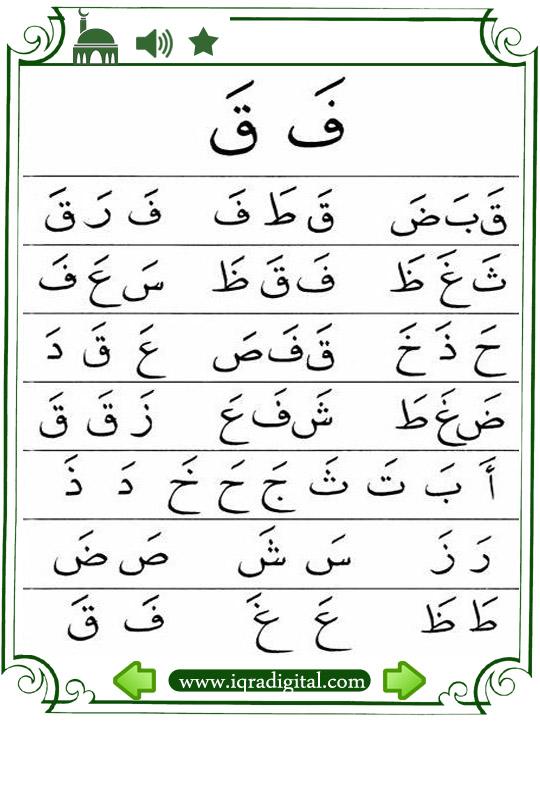 فَ قَ
قَ بَ ضَ قَ طَ فَ فَ رَ قَ
ثَ غَ ظَ فَ قَ ظَ سَ عَ فَ
حَ ذَ خَ قَ فَ صَ عَ قَ دَ
ضَ غَ طَ شَ فَ عَ زَ قَ قَ
أَ بَ تَ ثَ جَ حَ خَ دَ ذَ
رَ زَ سَ شَ صَ ضَ
طَ ظَ عَ غَ فَ قَ
www.iqradigital.com